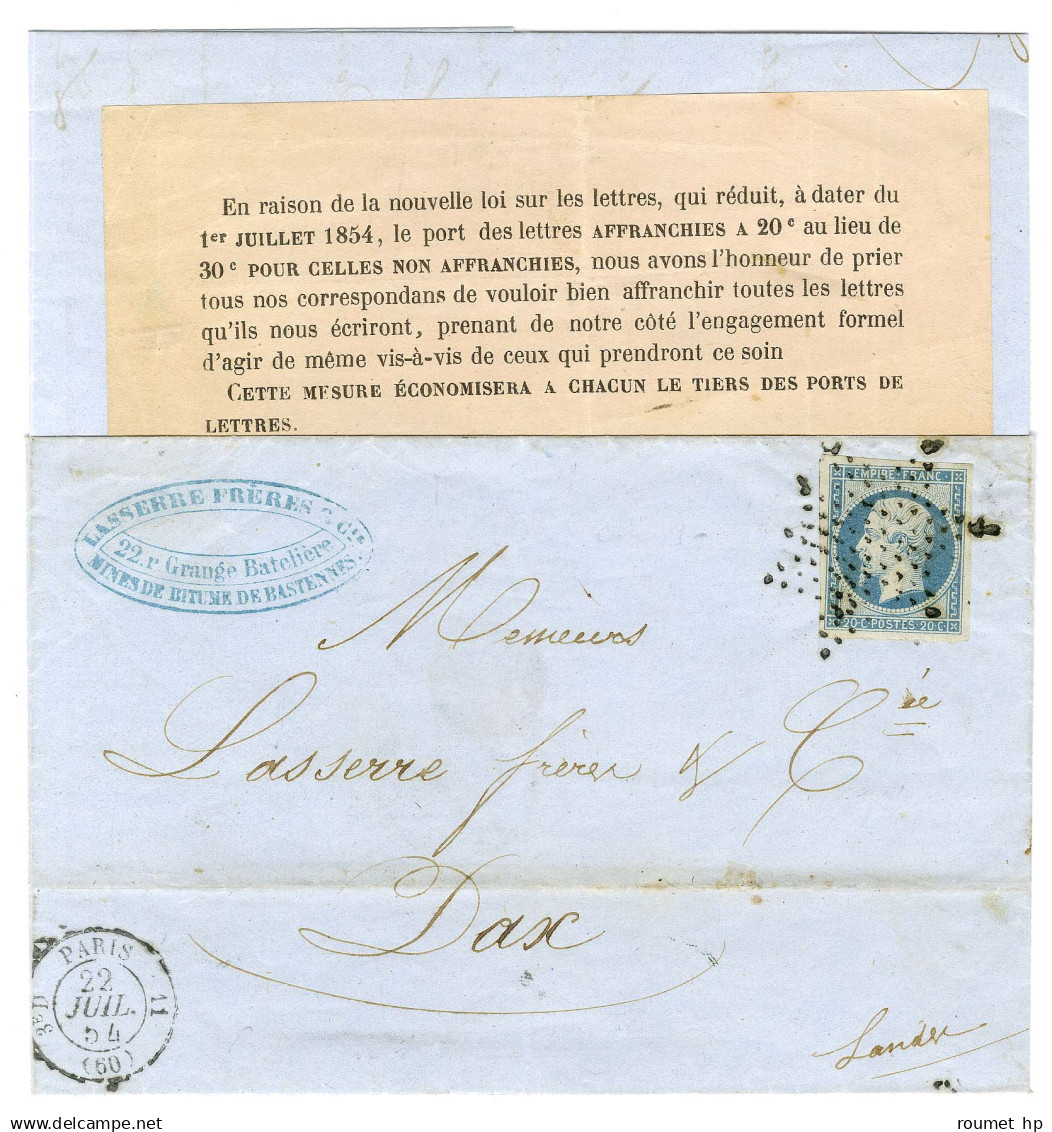 En raison de la nouvelle loi sur les lettres, qui réduit, à dater du
1er JUILLET 1854, le port des lettres AFFRANCHIES A 20c au lieu de
30c POUR CELLES NON AFFRANCHIES, nous avons l'honneur de prier
tous nos correspondans de vouloir bien affranchir toutes les lettres
qu'ils nous écriront, prenant de notre côté l'engagement formel
d'agir de même vis-à-vis de ceux qui prendront ce soin
CETTE MESURE ÉCONOMISERA A CHACUN LE TIERS DES PORTS DE
LETTRES.
LASSERRE FRÈRES & Cie.
22. r Grange Batelière
MINES DE BITUME DE BASTENNES.
EMPIRE FRANC
20·C·POSTES·20·C
Messieurs
Lasserre frères & Cie
Dax
Landes
PARIS
3e D
11
22
JUIL.
54
(60)
roumet hp